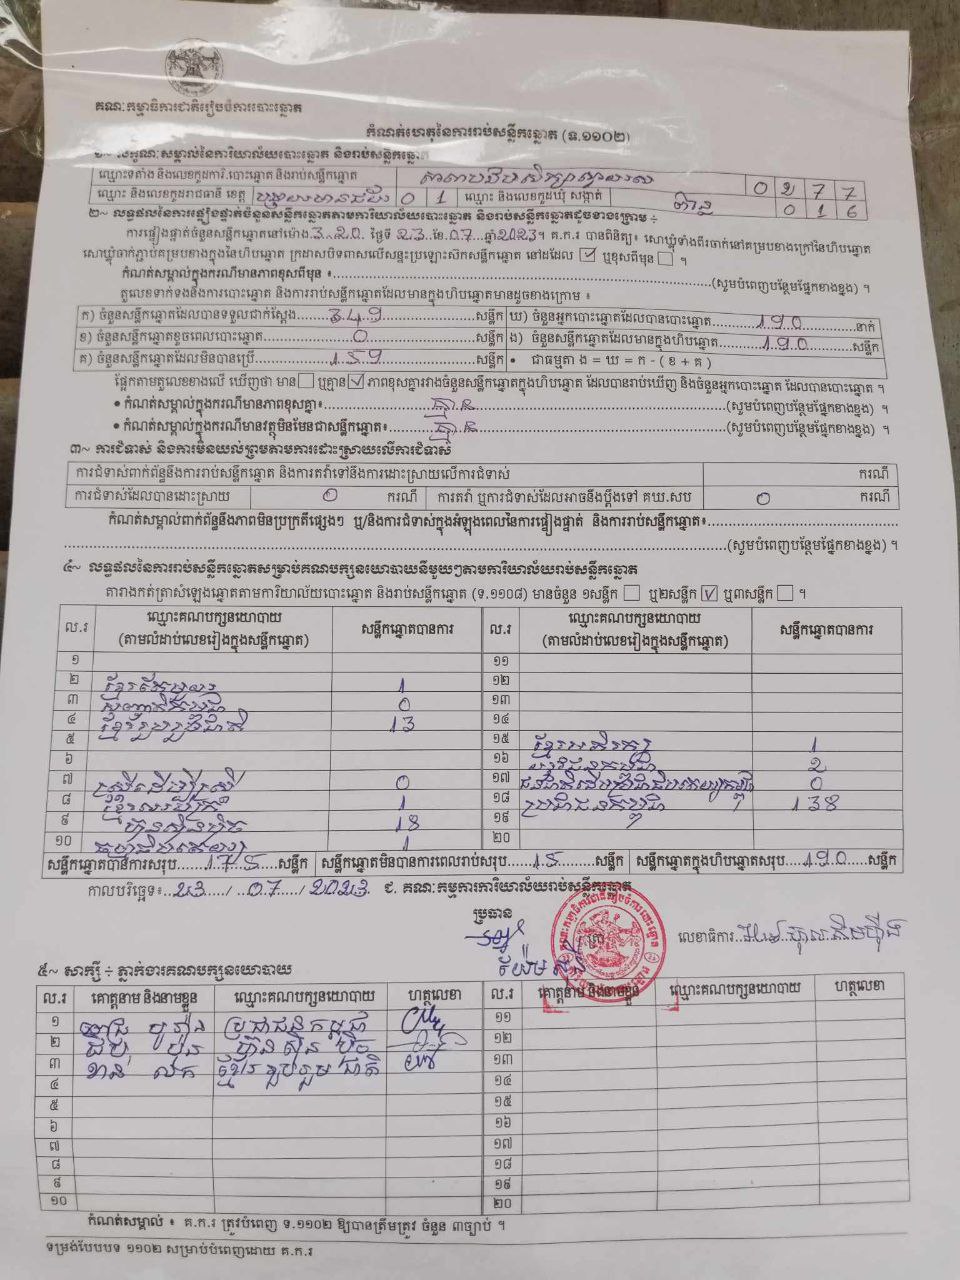 គណៈកម្មាធិការជាតិរៀបចំការបោះឆ្នោត
កំណត់ហេតុនៃការរាប់សន្លឹកឆ្នោត (ទ.១១០២)
១~ លក្ខណៈសម្គាល់នៃការិយាល័យបោះឆ្នោត និងរាប់សន្លឹកឆ្នោត
ឈ្មោះទីតាំង និងលេខកូដការិ.បោះឆ្នោត និងរាប់សន្លឹកឆ្នោត 0 2 7 7
ឈ្មោះ និងលេខកូដរាជធានី ខេត្ត បន្ទាយមានជ័យ 0 1 ឈ្មោះ និងលេខកូដឃុំ សង្កាត់ 0 1 6
២~ លទ្ធផលនៃការផ្ទៀងផ្ទាត់ចំនួនសន្លឹកឆ្នោតតាមការិយាល័យបោះឆ្នោត និងរាប់សន្លឹកឆ្នោតដូចខាងក្រោម ÷
ការផ្ទៀងផ្ទាត់ចំនួនសន្លឹកឆ្នោតនៅម៉ោង 3:20 ថ្ងៃទី 23 ខែ 07 ឆ្នាំ 2023។ គ.ក.រ បានពិនិត្យ៖ សោឃ្នុំទាំងពីរចាក់នៅគម្របខាងក្រៅនៃហិបឆ្នោត
សោឃ្នុំចាក់ភ្ជាប់គម្របខាងក្នុងនៃហិបឆ្នោត ក្រដាសបិទពាសលើសន្ទះប្រឡោះស៊កសន្លឹកឆ្នោត នៅដដែល ☑ ឬខុសពីមុន ☐ ។
កំណត់សម្គាល់ក្នុងករណីមានភាពខុសពីមុន ៖ (សូមបំពេញបន្ថែមផ្នែកខាងខ្នង) ។
តួលេខទាក់ទងនឹងការបោះឆ្នោត និងការរាប់សន្លឹកឆ្នោតដែលមានក្នុងហិបឆ្នោតមានដូចខាងក្រោម ៖
ក) ចំនួនសន្លឹកឆ្នោតដែលបានទទួលជាក់ស្តែង 349 សន្លឹក ឃ) ចំនួនអ្នកបោះឆ្នោតដែលបានបោះឆ្នោត 190 នាក់
ខ) ចំនួនសន្លឹកឆ្នោតខូចពេលបោះឆ្នោត 0 សន្លឹក ង) ចំនួនសន្លឹកឆ្នោតដែលមានក្នុងហិបឆ្នោត 190 សន្លឹក
គ) ចំនួនសន្លឹកឆ្នោតដែលមិនបានប្រើ 159 សន្លឹក • ជាធម្មតា ង = ឃ = ក - ( ខ + គ )
ផ្អែកតាមតួលេខខាងលើ ឃើញថា មាន ☐ ឬគ្មាន ☑ ភាពខុសគ្នារវាងចំនួនសន្លឹកឆ្នោតក្នុងហិបឆ្នោត ដែលបានរាប់ឃើញ និងចំនួនអ្នកបោះឆ្នោត ដែលបានបោះឆ្នោត ។
• កំណត់សម្គាល់ក្នុងករណីមានភាពខុសគ្នា៖ គ្មាន (សូមបំពេញបន្ថែមផ្នែកខាងខ្នង) ។
• កំណត់សម្គាល់ក្នុងករណីមានវត្ថុមិនមែនជាសន្លឹកឆ្នោត៖ គ្មាន (សូមបំពេញបន្ថែមផ្នែកខាងខ្នង) ។
៣~ ការជំទាស់ និងការមិនយល់ព្រមតាមការដោះស្រាយលើការជំទាស់
ការជំទាស់ពាក់ព័ន្ធនឹងការរាប់សន្លឹកឆ្នោត និងការតវ៉ាទៅនឹងការដោះស្រាយលើការជំទាស់ ករណី
ការជំទាស់ដែលបានដោះស្រាយ 0 ករណី ការតវ៉ា ឬការជំទាស់ដែលអាចនឹងប្តឹងទៅ គឃ.សប 0 ករណី
កំណត់សម្គាល់ពាក់ព័ន្ធនឹងភាពមិនប្រក្រតីផ្សេងៗ ឬ/និងការជំទាស់ក្នុងអំឡុងពេលនៃការផ្ទៀងផ្ទាត់ និងការរាប់សន្លឹកឆ្នោត៖
(សូមបំពេញបន្ថែមផ្នែកខាងខ្នង) ។
៤~ លទ្ធផលនៃការរាប់សន្លឹកឆ្នោតសម្រាប់គណបក្សនយោបាយនីមួយៗតាមការិយាល័យរាប់សន្លឹកឆ្នោត
តារាងកត់ត្រាសំឡេងឆ្នោតតាមការិយាល័យបោះឆ្នោត និងរាប់សន្លឹកឆ្នោត (ទ.១១០៨) មានចំនួន ១សន្លឹក ☐ ឬ២សន្លឹក ☑ ឬ៣សន្លឹក ☐ ។
ល.រ ឈ្មោះគណបក្សនយោបាយ (តាមលំដាប់លេខរៀងក្នុងសន្លឹកឆ្នោត) សន្លឹកឆ្នោតបានការ ល.រ ឈ្មោះគណបក្សនយោបាយ (តាមលំដាប់លេខរៀងក្នុងសន្លឹកឆ្នោត) សន្លឹកឆ្នោតបានការ
១ ១១
២ 1 ១២
៣ 0 ១៣
៤ ខ្មែររួបរួមជាតិ 13 ១៤
៥ ១៥ 1
៦ ១៦ 2
៧ ស្រីដើម្បីស្រី 0 ១៧ 0
៨ 1 ១៨ ប្រជាជនកម្ពុជា 138
៩ ហ៊្វុនស៊ិនប៉ិច 18 ១៩
១០ 1 ២០
សន្លឹកឆ្នោតបានការសរុប 175 សន្លឹក សន្លឹកឆ្នោតមិនបានការពេលរាប់សរុប 15 សន្លឹក សន្លឹកឆ្នោតក្នុងហិបឆ្នោតសរុប 190 សន្លឹក
កាលបរិច្ឆេទ៖ 23 / 07 / 2023 ជ. គណៈកម្មការការិយាល័យរាប់សន្លឹកឆ្នោត
ប្រធាន
លេខាធិការ
៥~ សាក្សី ÷ ភ្នាក់ងារគណបក្សនយោបាយ
ល.រ គោត្តនាម និងនាមខ្លួន ឈ្មោះគណបក្សនយោបាយ ហត្ថលេខា ល.រ គោត្តនាម និងនាមខ្លួន ឈ្មោះគណបក្សនយោបាយ ហត្ថលេខា
១ ប្រជាជនកម្ពុជា ១១
២ ហ៊្វុនស៊ិនប៉ិច ១២
៣ ខ្មែររួបរួមជាតិ ១៣
៤ ១៤
៥ ១៥
៦ ១៦
៧ ១៧
៨ ១៨
៩ ១៩
១០ ២០
កំណត់សម្គាល់ ៖ គ.ក.រ ត្រូវបំពេញ ទ.១១០២ ឱ្យបានត្រឹមត្រូវ ចំនួន ៣ច្បាប់ ។
ទម្រង់បែបបទ ១១០២ សម្រាប់បំពេញដោយ គ.ក.រ